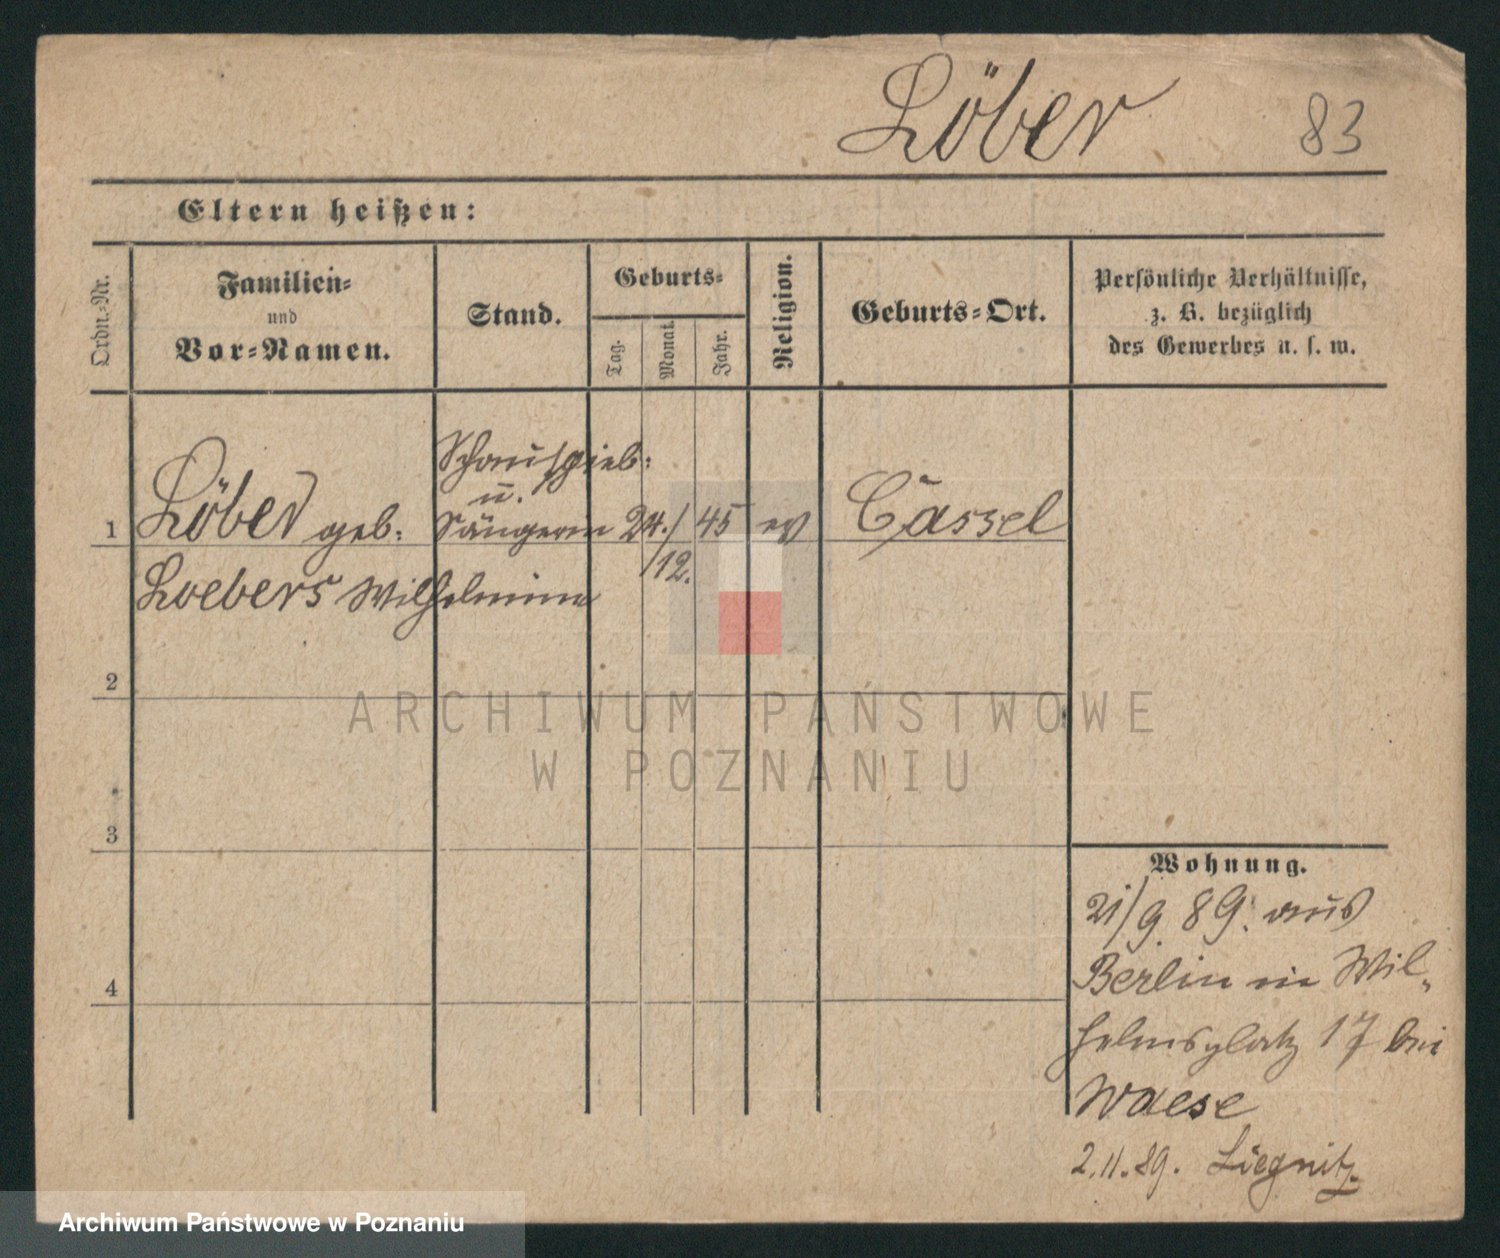 Löber 83
Eltern heißen:
Ordn.-Nr.
Familien-
und
Vor-Namen.
Stand.
Geburts-
Tag.
Monat.
Jahr.
Religion.
Geburts-Ort.
Persönliche Verhältnisse,
z. B. bezüglich
des Gewerbes u. s. w.
Schauspiel-
u.
1 Löber geb. Sängerin 24./ 45 ev Cassel
/12.
Loebers Wilhelmine
2
3
4
Wohnung.
21/9. 89. aus
Berlin in Wil-
helmsplatz 17 bei
Waese
2.11.89. Liegnitz.
ARCHIWUM PAŃSTWOWE
W POZNANIU
Archiwum Państwowe w Poznaniu